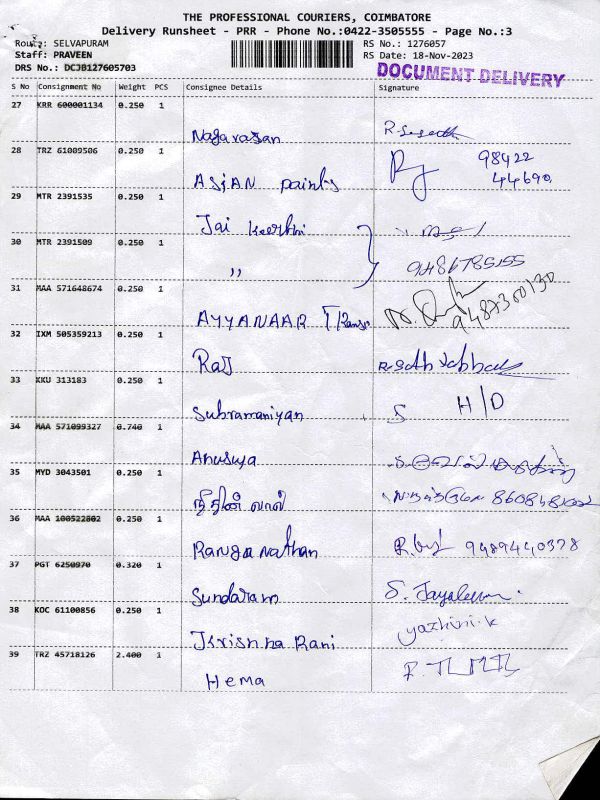 THE PROFESSIONAL COURIERS, COIMBATORE
Delivery Runsheet - PRR - Phone No.:0422-3505555 - Page No.:3
Route: SELVAPURAM
RS No.: 1276057
Staff: PRAVEEN
RS Date: 18-Nov-2023
DRS No.: DCJB127605703
DOCUMENT DELIVERY
S No Consignment No Weight PCS Consignee Details Signature
27 KRR 600001134 0.250 1
Nagarasan
28 TRZ 61009506 0.250 1
98422
44690
ASIAN paints
29 MTR 2391535 0.250 1
Jai Keerthi
30 MTR 2391509 0.250 1
9486785155
"
31 MAA 571648674 0.250 1
9487300130
AYYANAAR Trans
32 IXM 505359213 0.250 1
Raj
33 KKU 313183 0.250 1
H/D
Subramaniyan
34 MAA 571099327 0.740 1
Anusuya
35 MYD 3043501 0.250 1
36 MAA 100522802 0.250 1
9489440378
Ranganathan
37 PGT 6250970 0.320 1
Sundaram
38 KOC 61100856 0.250 1
yazhini.k
Krishna Rani
39 TRZ 45718126 2.400 1
Hema